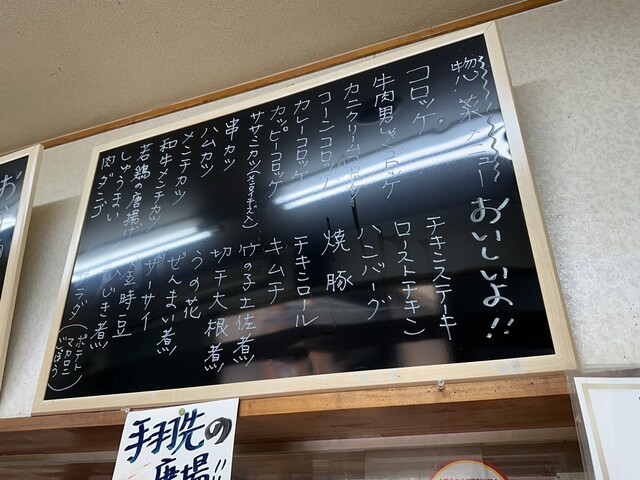 惣菜メニュー おいしいよ!!
コロッケ
牛肉男しゃくコロッケ
カニクリームコロッケ
コーンコロッケ
カレーコロッケ
カッピーコロッケ
ササミカツ
串カツ
ハムカツ
メンチカツ
和牛メンチカツ
若鶏の唐揚げ
しゅうまい
肉ダンゴ
チキンステーキ
ローストチキン
ハンバーグ
焼豚
チキンロール
キムチ
竹の子土佐煮
切干大根煮
うの花
ぜんまい煮
ザーサイ
金時豆
ひじき煮
サラダ(ポテト
マカロニ
ごぼう)
手羽先の
唐揚!!